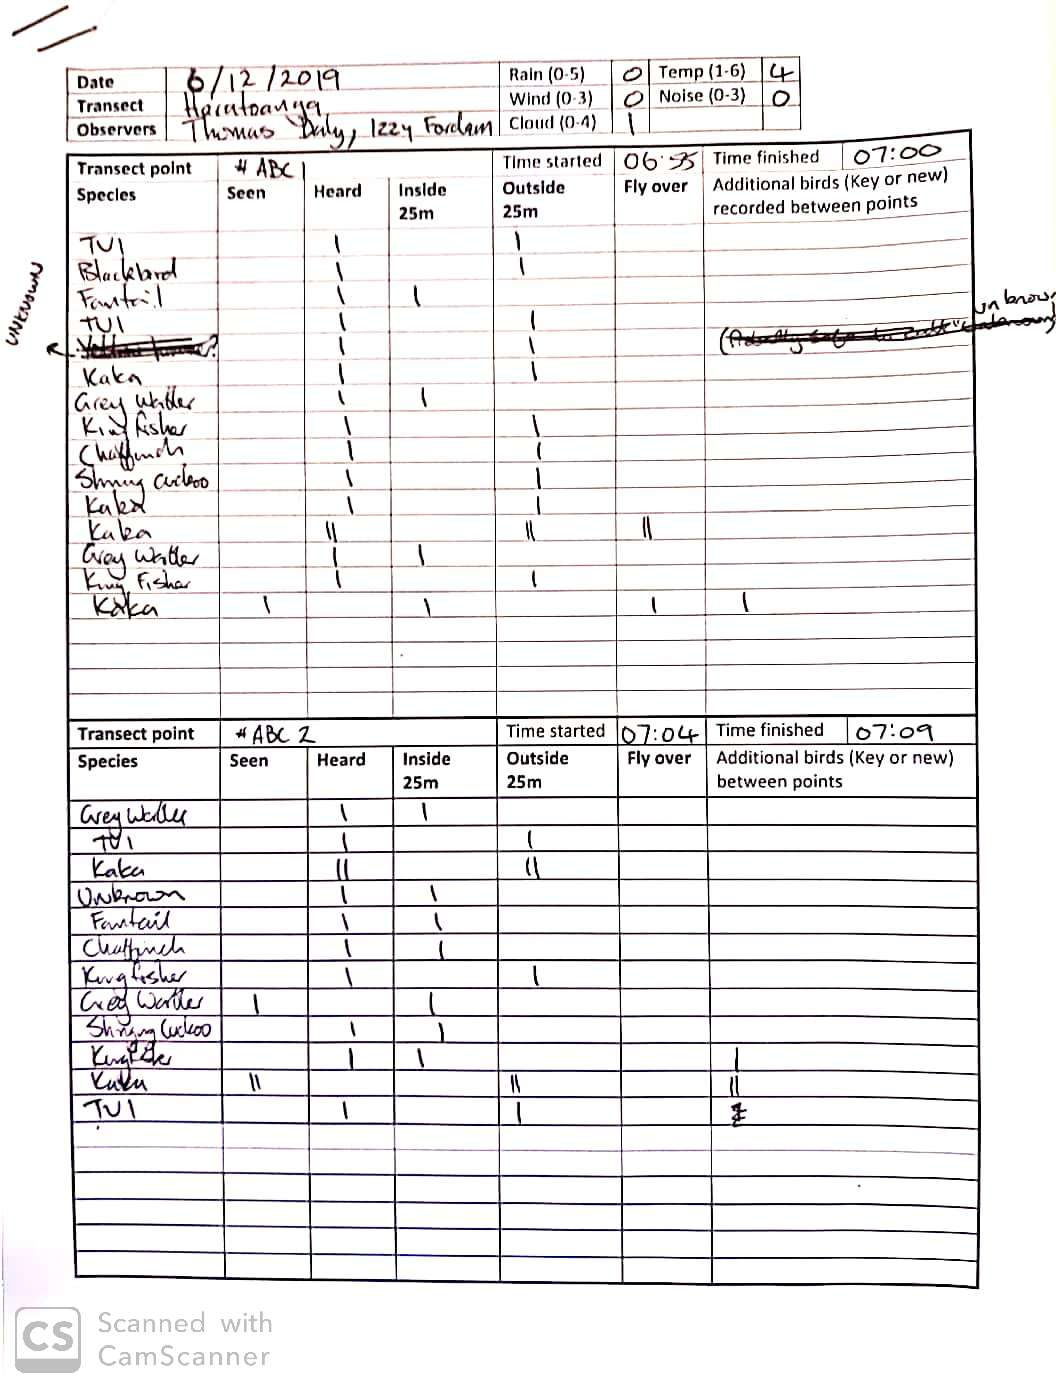 Date 6/12/2019 Rain (0-5) 0 Temp (1-6) 4
Transect Haratoanga Wind (0-3) 0 Noise (0-3) 0
Observers Thomas Daly, Izzy Fordam Cloud (0-4) 1
Transect point # ABC 1 Time started 06:55 Time finished 07:00
Species Seen Heard Inside 25m Outside 25m Fly over Additional birds (Key or new) recorded between points
TUI | |
Blackbird | |
Fantail | |
TUI | | unknown
UNKNOWN | |
Kaka | |
Grey Warbler | |
King fisher | |
Chaffinch | |
Shining Cuckoo | |
Kaka | |
Kaka || || ||
Grey Warbler | |
King Fisher | |
Kaka | | | |
Transect point # ABC 2 Time started 07:04 Time finished 07:09
Species Seen Heard Inside 25m Outside 25m Fly over Additional birds (Key or new) between points
Grey Warbler | |
TUI | |
Kaka || ||
Unknown | |
Fantail | |
Chaffinch | |
Kingfisher | |
Grey Warbler | |
Shining Cuckoo | |
Kingfisher | | |
Kaka || || ||
TUI | |
CS Scanned with
CamScanner